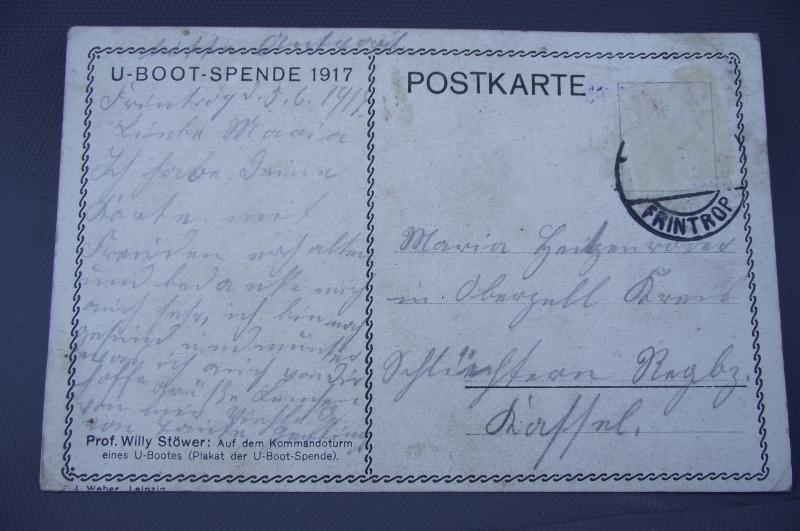 U-BOOT-SPENDE 1917
Frintrop d. 5.6. 191
Liebe Maria
Ich habe Deine
Karte mit
Freuden erhalten
und bedanke mich
auch sehr, ich bin noch
gesund und munter
was ich auch von Dir
hoffe Grüße
von mir
von
Prof. Willy Stöwer: Auf dem Kommandoturm
eines U-Bootes (Plakat der U-Boot-Spende).
J. Weber, Leipzig
POSTKARTE
FRINTROP
Maria
in Oberzell Kreis
Schlüchtern Regbz.
Kassel.